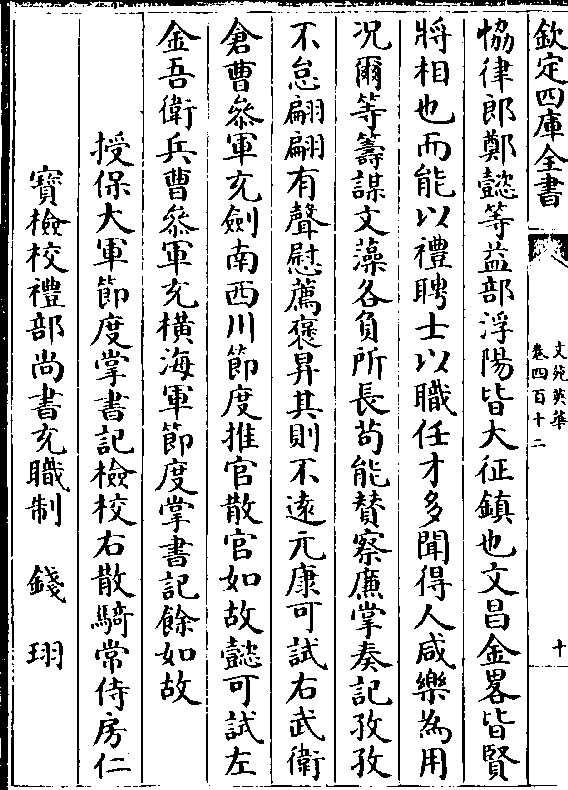 欽定四庫全書
文苑英華
卷四百十二
十
恊律郎鄭懿等益部浮陽皆大征鎮也文昌金畧皆賢
將相也而能以禮聘士以職任才多聞得人咸樂為用
况爾等籌謀文藻各負所長茍能賛察廉掌奏記孜孜
不怠翩翩有聲慰薦褒昇其則不逺元康可試右武衛
倉曹叅軍充劍南西川節度推官散官如故懿可試左
金吾衛兵曹叅軍充横海軍節度掌書記餘如故
授保大軍節度掌書記檢校右散騎常侍房仁
寳檢校禮部尚書充職制 錢珝